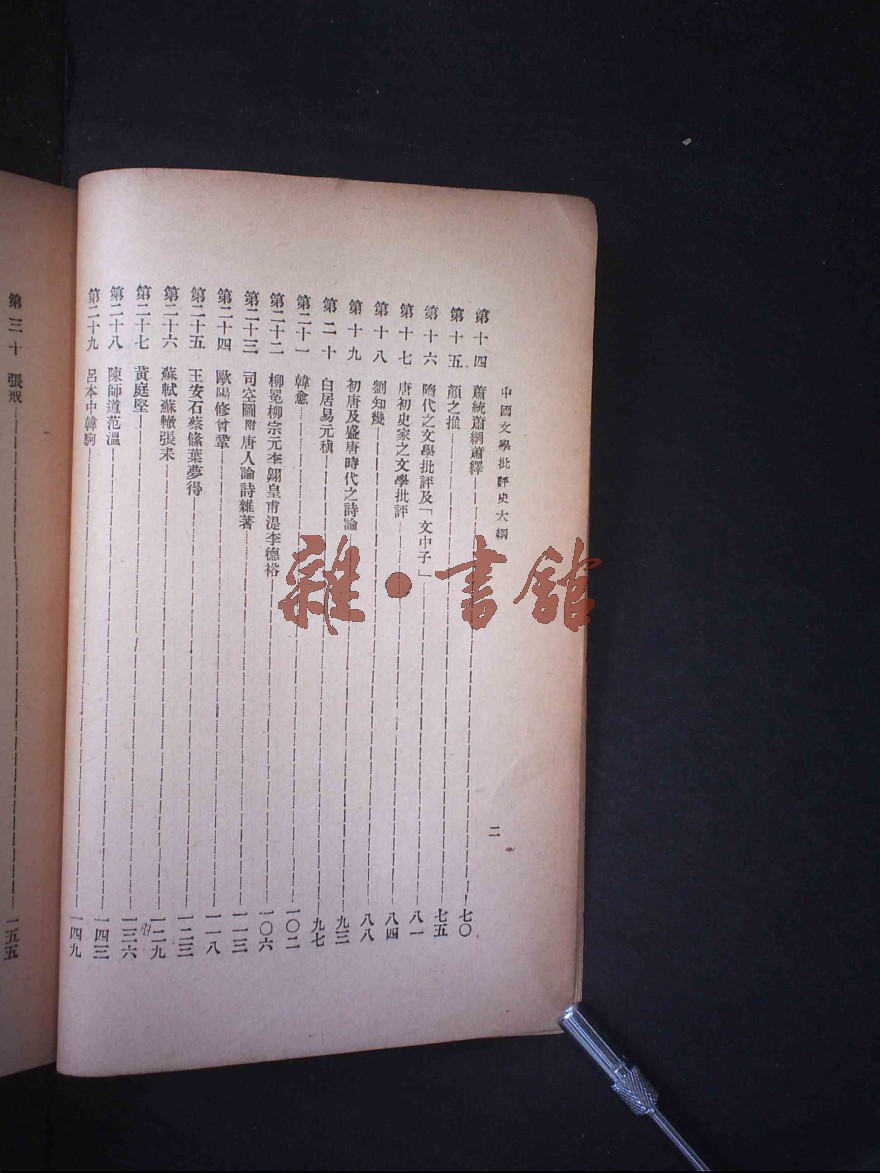 中國文學批評史大綱
二
第十四 蕭統蕭綱蕭繹 七〇
第十五 顏之推 七五
第十六 隋代之文學批評及「文中子」 八一
第十七 唐初史家之文學批評 八四
第十八 劉知幾 八八
第十九 初唐及盛唐時代之詩論 九三
第二十 白居易元稹 九七
第二十一 韓愈 一〇二
第二十二 柳冕柳宗元李翶皇甫湜李德裕 一〇六
第二十三 司空圖附唐人論詩雜著 一一三
第二十四 歐陽修曾鞏 一一八
第二十五 王安石蔡絛葉夢得 一二三
第二十六 蘇軾蘇轍張耒 一二九
第二十七 黃庭堅 一三六
第二十八 陳師道范溫 一四三
第二十九 呂本中韓駒 一四九
第三十 張戒 一五五
雜·書館